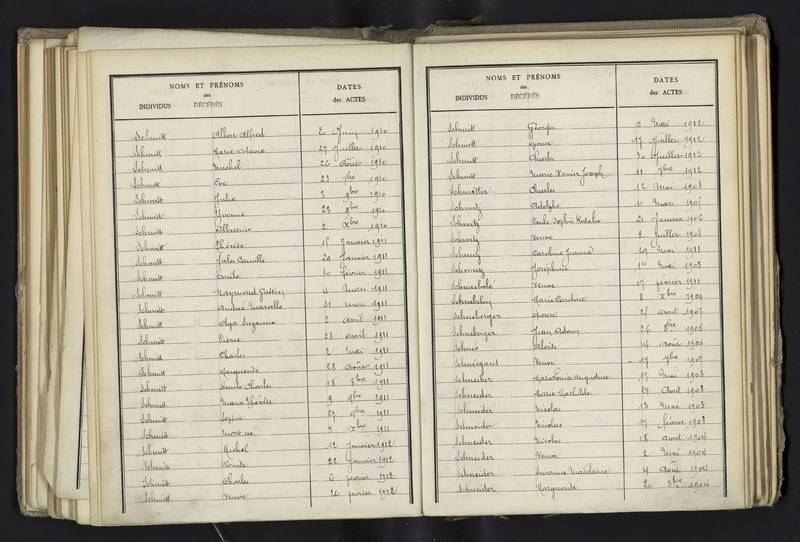 NOMS ET PRÉNOMS
des
INDIVIDUS DÉCÉDÉS
DATES
des ACTES
Schmitt Albert Alfred 20 Juin 1910
Schmitt Marie Octavie 27 Juillet 1910
Schmitt Michel 26 Août 1910
Schmitt Eve 23 7bre 1910
Schmitt Julie 3 9bre 1910
Schmitt Yvonne 23 9bre 1910
Schmitt 2 Xbre 1910
Schmitt Thérèse 15 Janvier 1911
Schmitt Jules Camille 29 Janvier 1911
Schmitt Emile 10 février 1911
Schmitt Raymond Gaston 4 Mars 1911
Schmitt Andrée Marcelle 31 mars 1911
Schmitt Olga Suzanne 2 avril 1911
Schmitt Pierre 28 avril 1911
Schmitt Charles 2 Mai 1911
Schmitt Marguerite 28 Août 1911
Schmitt Emile Charles 18 8bre 1911
Schmitt Marie Thérèse 9 9bre 1911
Schmitt 29 9bre 1911
Schmitt Mort né 5 Xbre 1911
Schmitt Michel 12 Janvier 1912
Schmitt Louise 22 Janvier 1912
Schmitt Charles 6 février 1912
Schmitt Veuve 26 février 1912
NOMS ET PRÉNOMS
des
INDIVIDUS DÉCÉDÉS
DATES
des ACTES
Schmitt Georges 5 Mai 1912
Schmitt épouse 17 Juillet 1912
Schmitt Charles 30 Juillet 1912
Schmitt Marie Xavier Joseph 11 7bre 1912
Charles 12 Mai 1903
Schmitz Adolphe 11 Mars 1905
Schmitz Sophie Rosalie 21 Janvier 1906
Schmitz Veuve 2 Juillet 1908
Schmitz Caroline Jeanne 19 Mai 1911
Joséphine 1er Mai 1903
Veuve 17 février 1911
Marie Caroline 8 Xbre 1909
Schneberger épouse 25 avril 1907
Schneberger Jean Adam 26 8bre 1908
Aloïse 14 Août 1906
Veuve 17 7bre 1907
Schneiber Marie Louise Augustine 17 Mai 1908
Schneider Marie Mathilde 27 Avril 1903
Schneider Nicolas 13 Mai 1903
Schneider Nicolas 17 février 1903
Schneider Nicolas 18 avril 1904
Schneider Veuve 2 Mai 1904
Schneider Suzanne Madelaine 4 Août 1904
Schneider Marguerite 20 8bre 1904